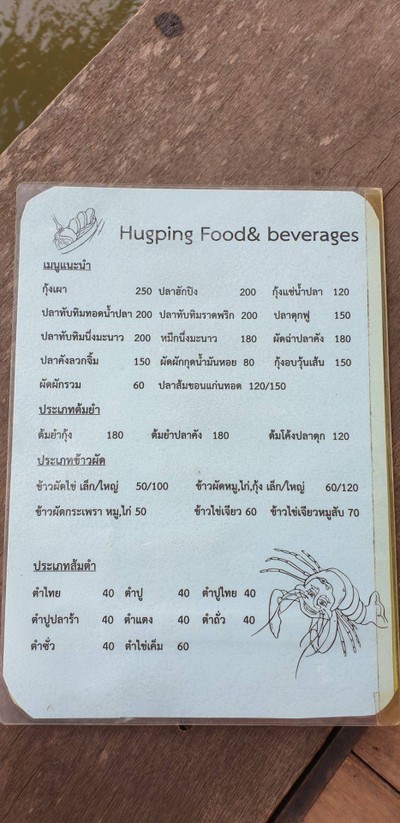 Hugping Food& beverages
เมนูแนะนำ
กุ้งเผา 250 ปลาฮักปิง 200 กุ้งแช่น้ำปลา 120
ปลาทับทิมทอดน้ำปลา 200 ปลาทับทิมราดพริก 200 ปลาดุกฟู 150
ปลาทับทิมนึ่งมะนาว 200 หมึกนึ่งมะนาว 180 ผัดฉ่าปลาคัง 180
ปลาคังลวกจิ้ม 150 ผัดผักกูดน้ำมันหอย 80 กุ้งอบวุ้นเส้น 150
ผัดผักรวม 60 ปลาส้มขอนแก่นทอด 120/150
ประเภทต้มยำ
ต้มยำกุ้ง 180 ต้มยำปลาคัง 180 ต้มโค้งปลาดุก 120
ประเภทข้าวผัด
ข้าวผัดไข่ เล็ก/ใหญ่ 50/100 ข้าวผัดหมู,ไก่,กุ้ง เล็ก/ใหญ่ 60/120
ข้าวผัดกระเพรา หมู,ไก่ 50 ข้าวไข่เจียว 60 ข้าวไข่เจียวหมูสับ 70
ประเภทส้มตำ
ตำไทย 40 ตำปู 40 ตำปูไทย 40
ตำปูปลาร้า 40 ตำแตง 40 ตำถั่ว 40
ตำซั่ว 40 ตำไข่เค็ม 60